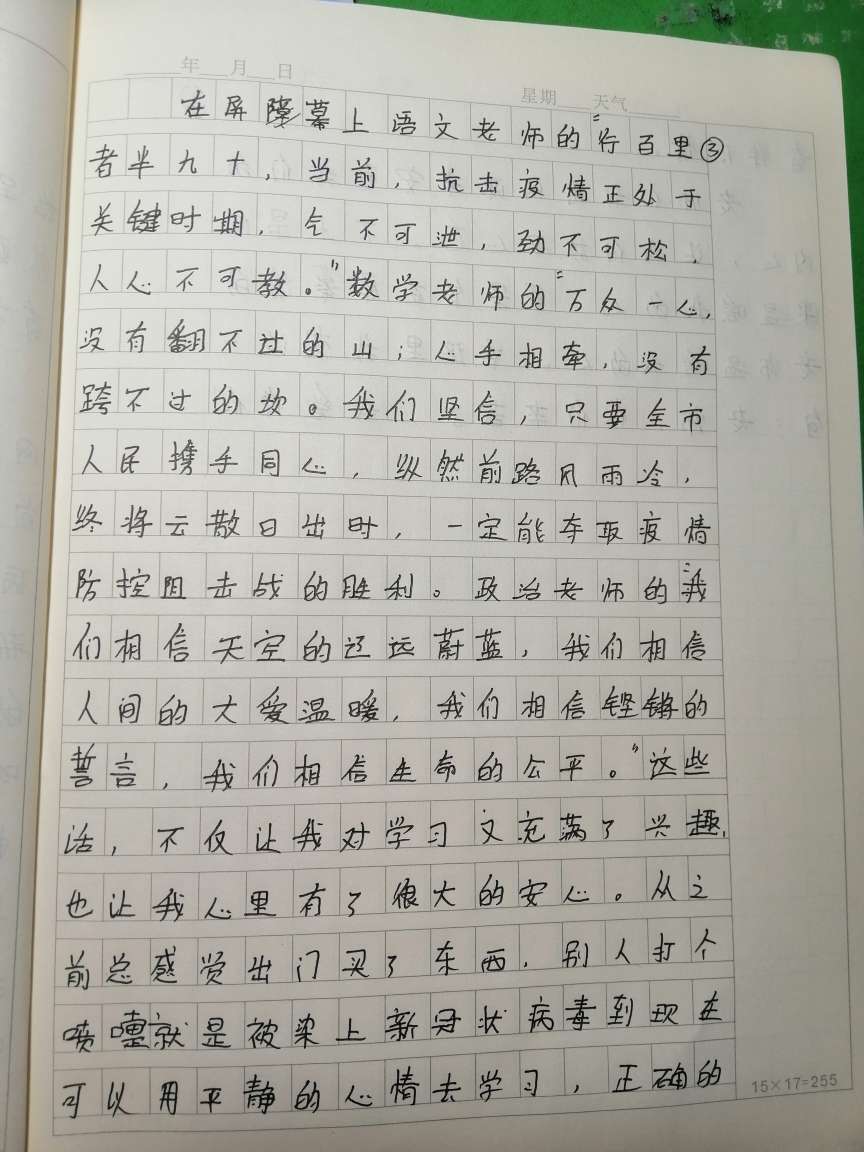 年 月 日
星期 天气
在屏障幕上语文老师的“行百里③
者半九十，当前，抗击疫情正处于
关键时期，气不可泄，劲不可松，
人心不可教。”数学老师的“万众一心，
没有翻不过的山；心手相牵，没有
跨不过的坎。我们坚信，只要全市
人民携手同心，纵然前路风雨冷，
终将云散日出时，一定能夺取疫情
防控阻击战的胜利。政治老师的“我
们相信天空的辽远蔚蓝，我们相信
人间的大爱温暖，我们相信铿锵的
誓言，我们相信生命的公平。”这些
话，不仅让我对学习又充满了兴趣，
也让我心里有了很大的安心。从之
前总感觉出门买了东西，别人打个
喷嚏就是被染上新冠状病毒到现在
可以用平静的心情去学习，正确的
15×17=255